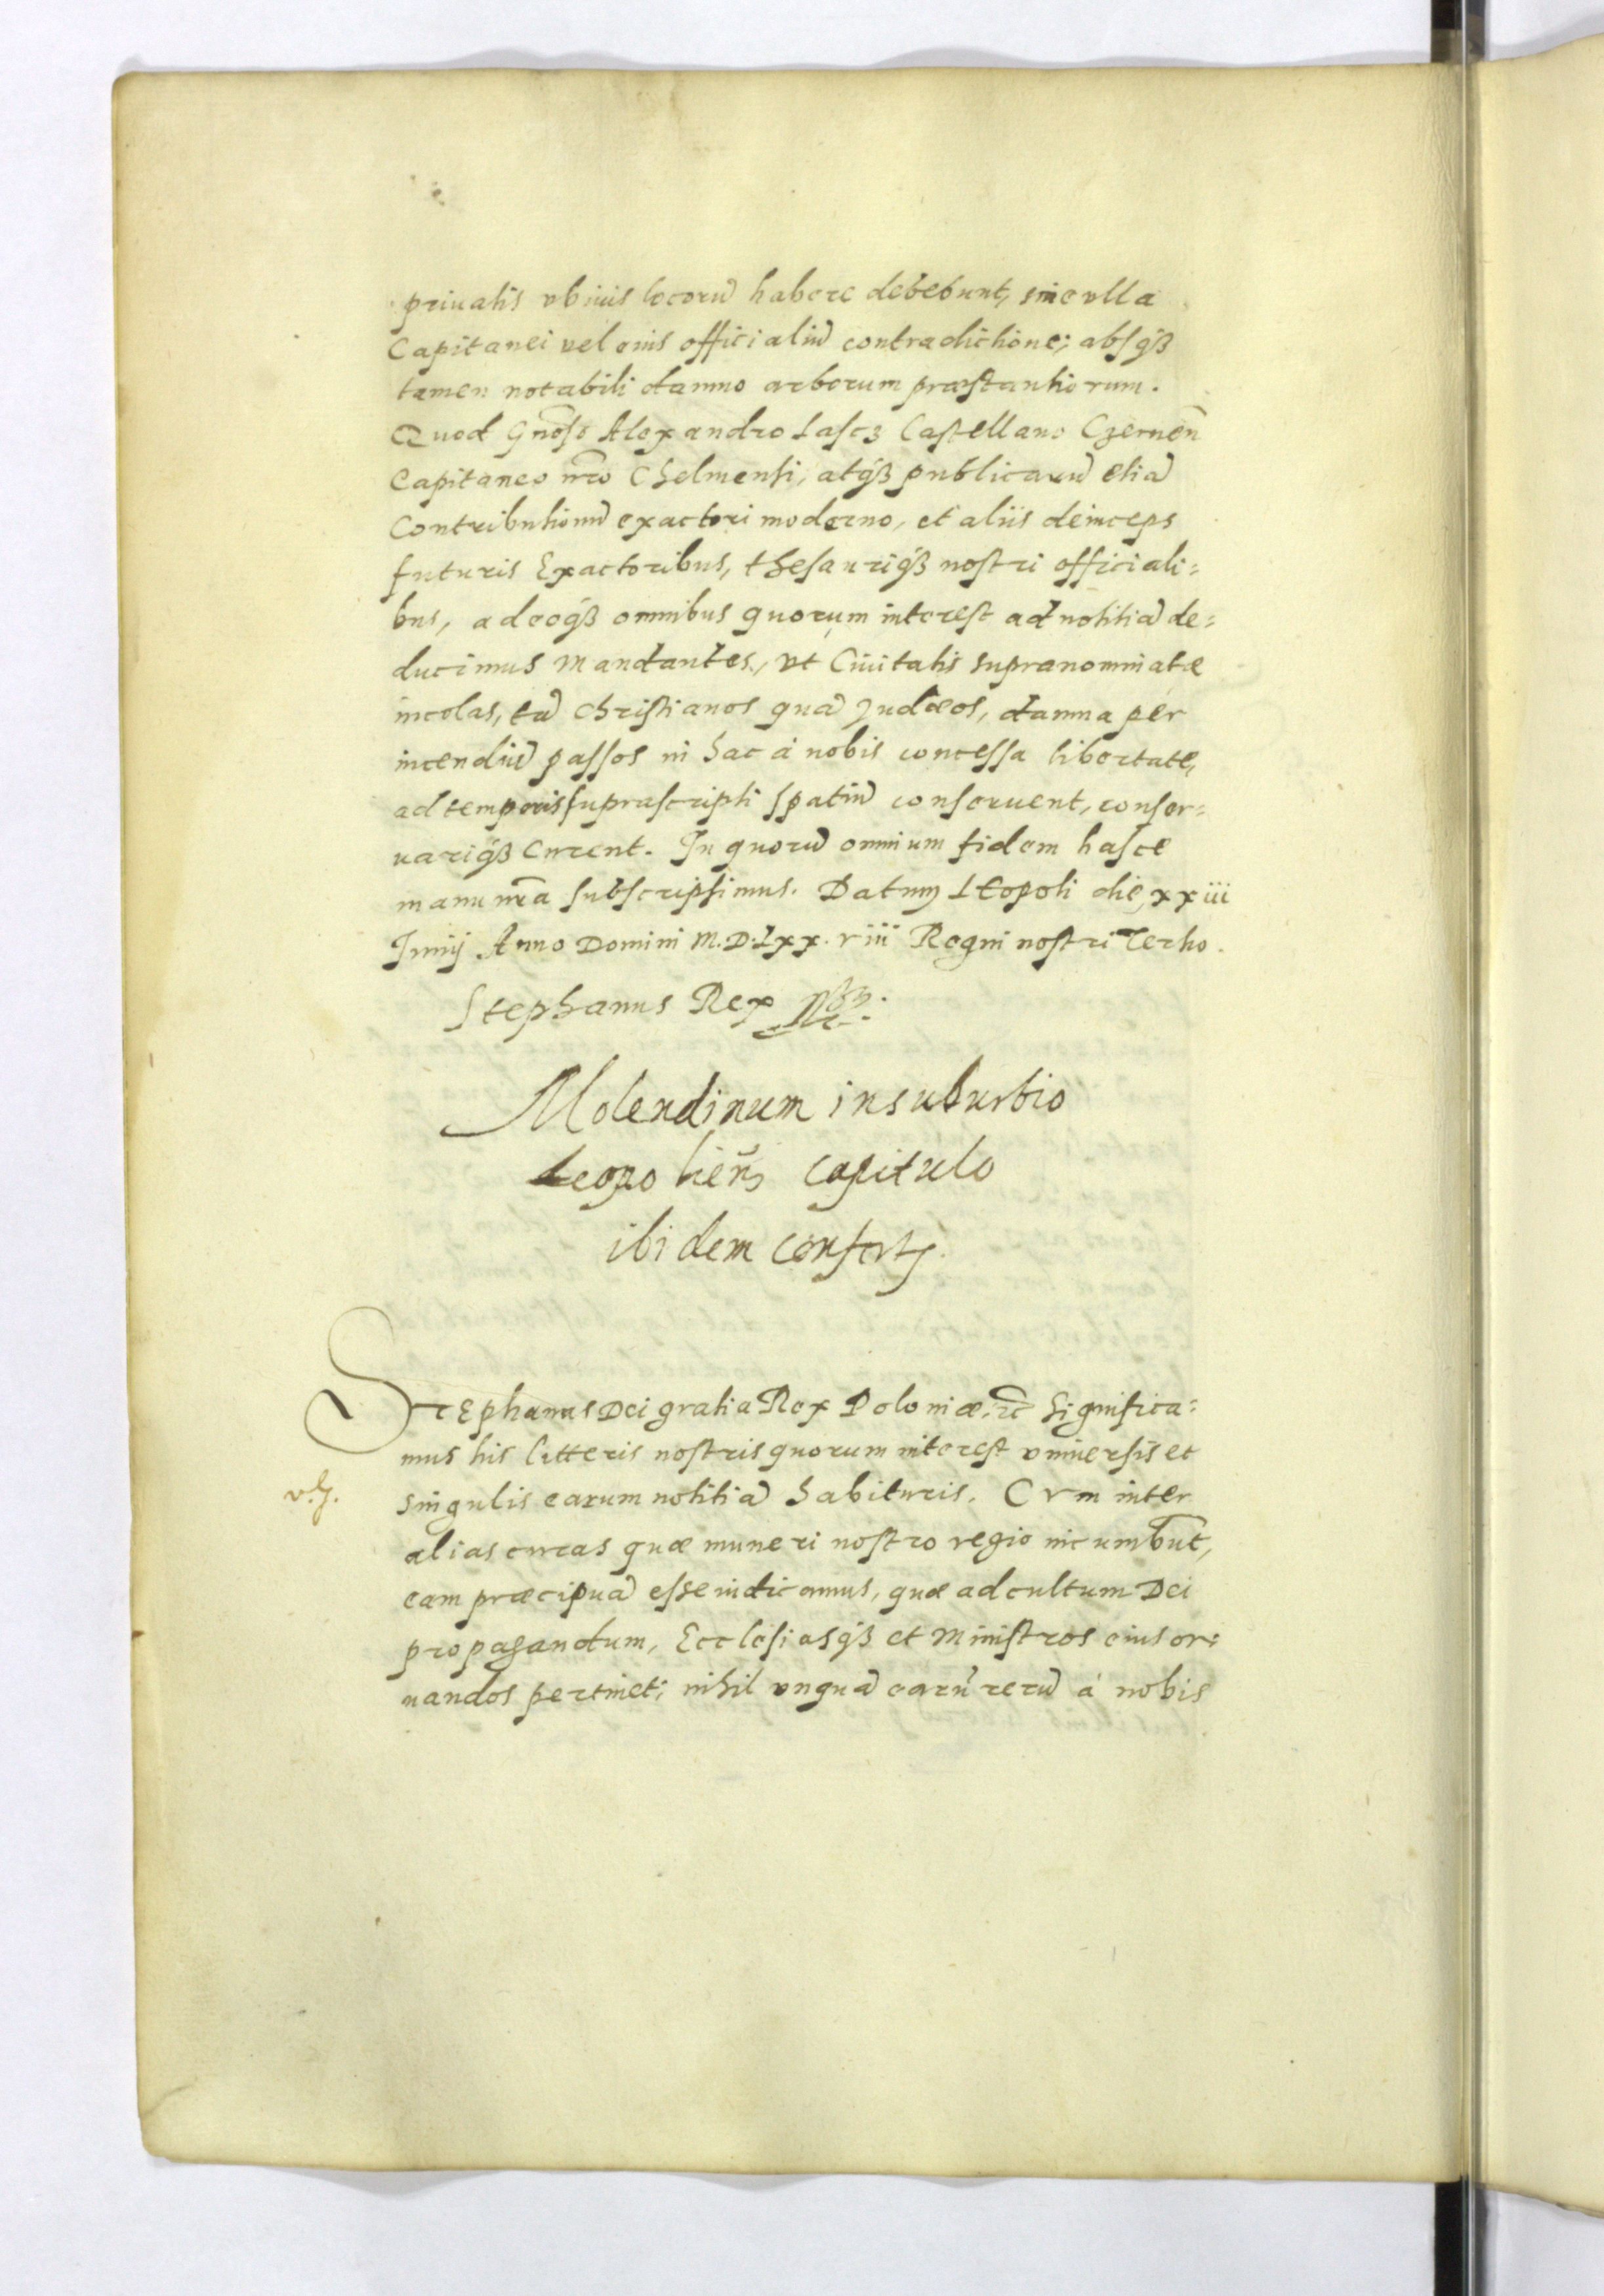 priuatis vbiuis locorũ habere debebunt, sine vlla
Capitanei vel eius officialiũ contradictione; absqȝ
tamen notabili damno arborum præstantiorum.
Quod Gñoso Alexandro Lascz Castellano Czernen̄
Capitaneo nr̄o Chelmensi, atqȝ publicarũ etiã
Contributionũ exactori moderno, et aliis deinceps
futuris Exactoribus, thesauriqȝ nostri officiali=
bus, adeoqȝ omnibus quorum interest ad notitiã de=
ducimus mandantes, vt Ciuitatis supranominatæ
incolas, tã Christianos quã Judæos, damna per
incendiũ passos in hac à nobis concessa libertate,
ad temporis suprascripti spatiũ conseruent, conser=
uariqȝ curent. In quorũ omnium fidem hasce
manu nr̄a subscripsimus. Datum LEopoli die, xxiii
Junij Anno Domini M.D.Lxx.viii Regni nostri Tertio.
Stephanus Rex
Molendinum in suburbio
Leopolien̄s capitulo
ibidem confert̃.
StEphanus Dei gratia Rex Poloniæ, ꝛc̄ Significa=
mus his litteris nostris quorum interest vniuersis et
v.g.
singulis earum notitiã habituris. CVm inter
alias curas quæ muneri nostro regio incumbũt,
eam præcipuã esse iudicamus, quæ ad cultum Dei
propagandum, Ecclesiasqȝ et Ministros eius or=
nandos pertinet; nihil vnquã earũ rerũ à nobis